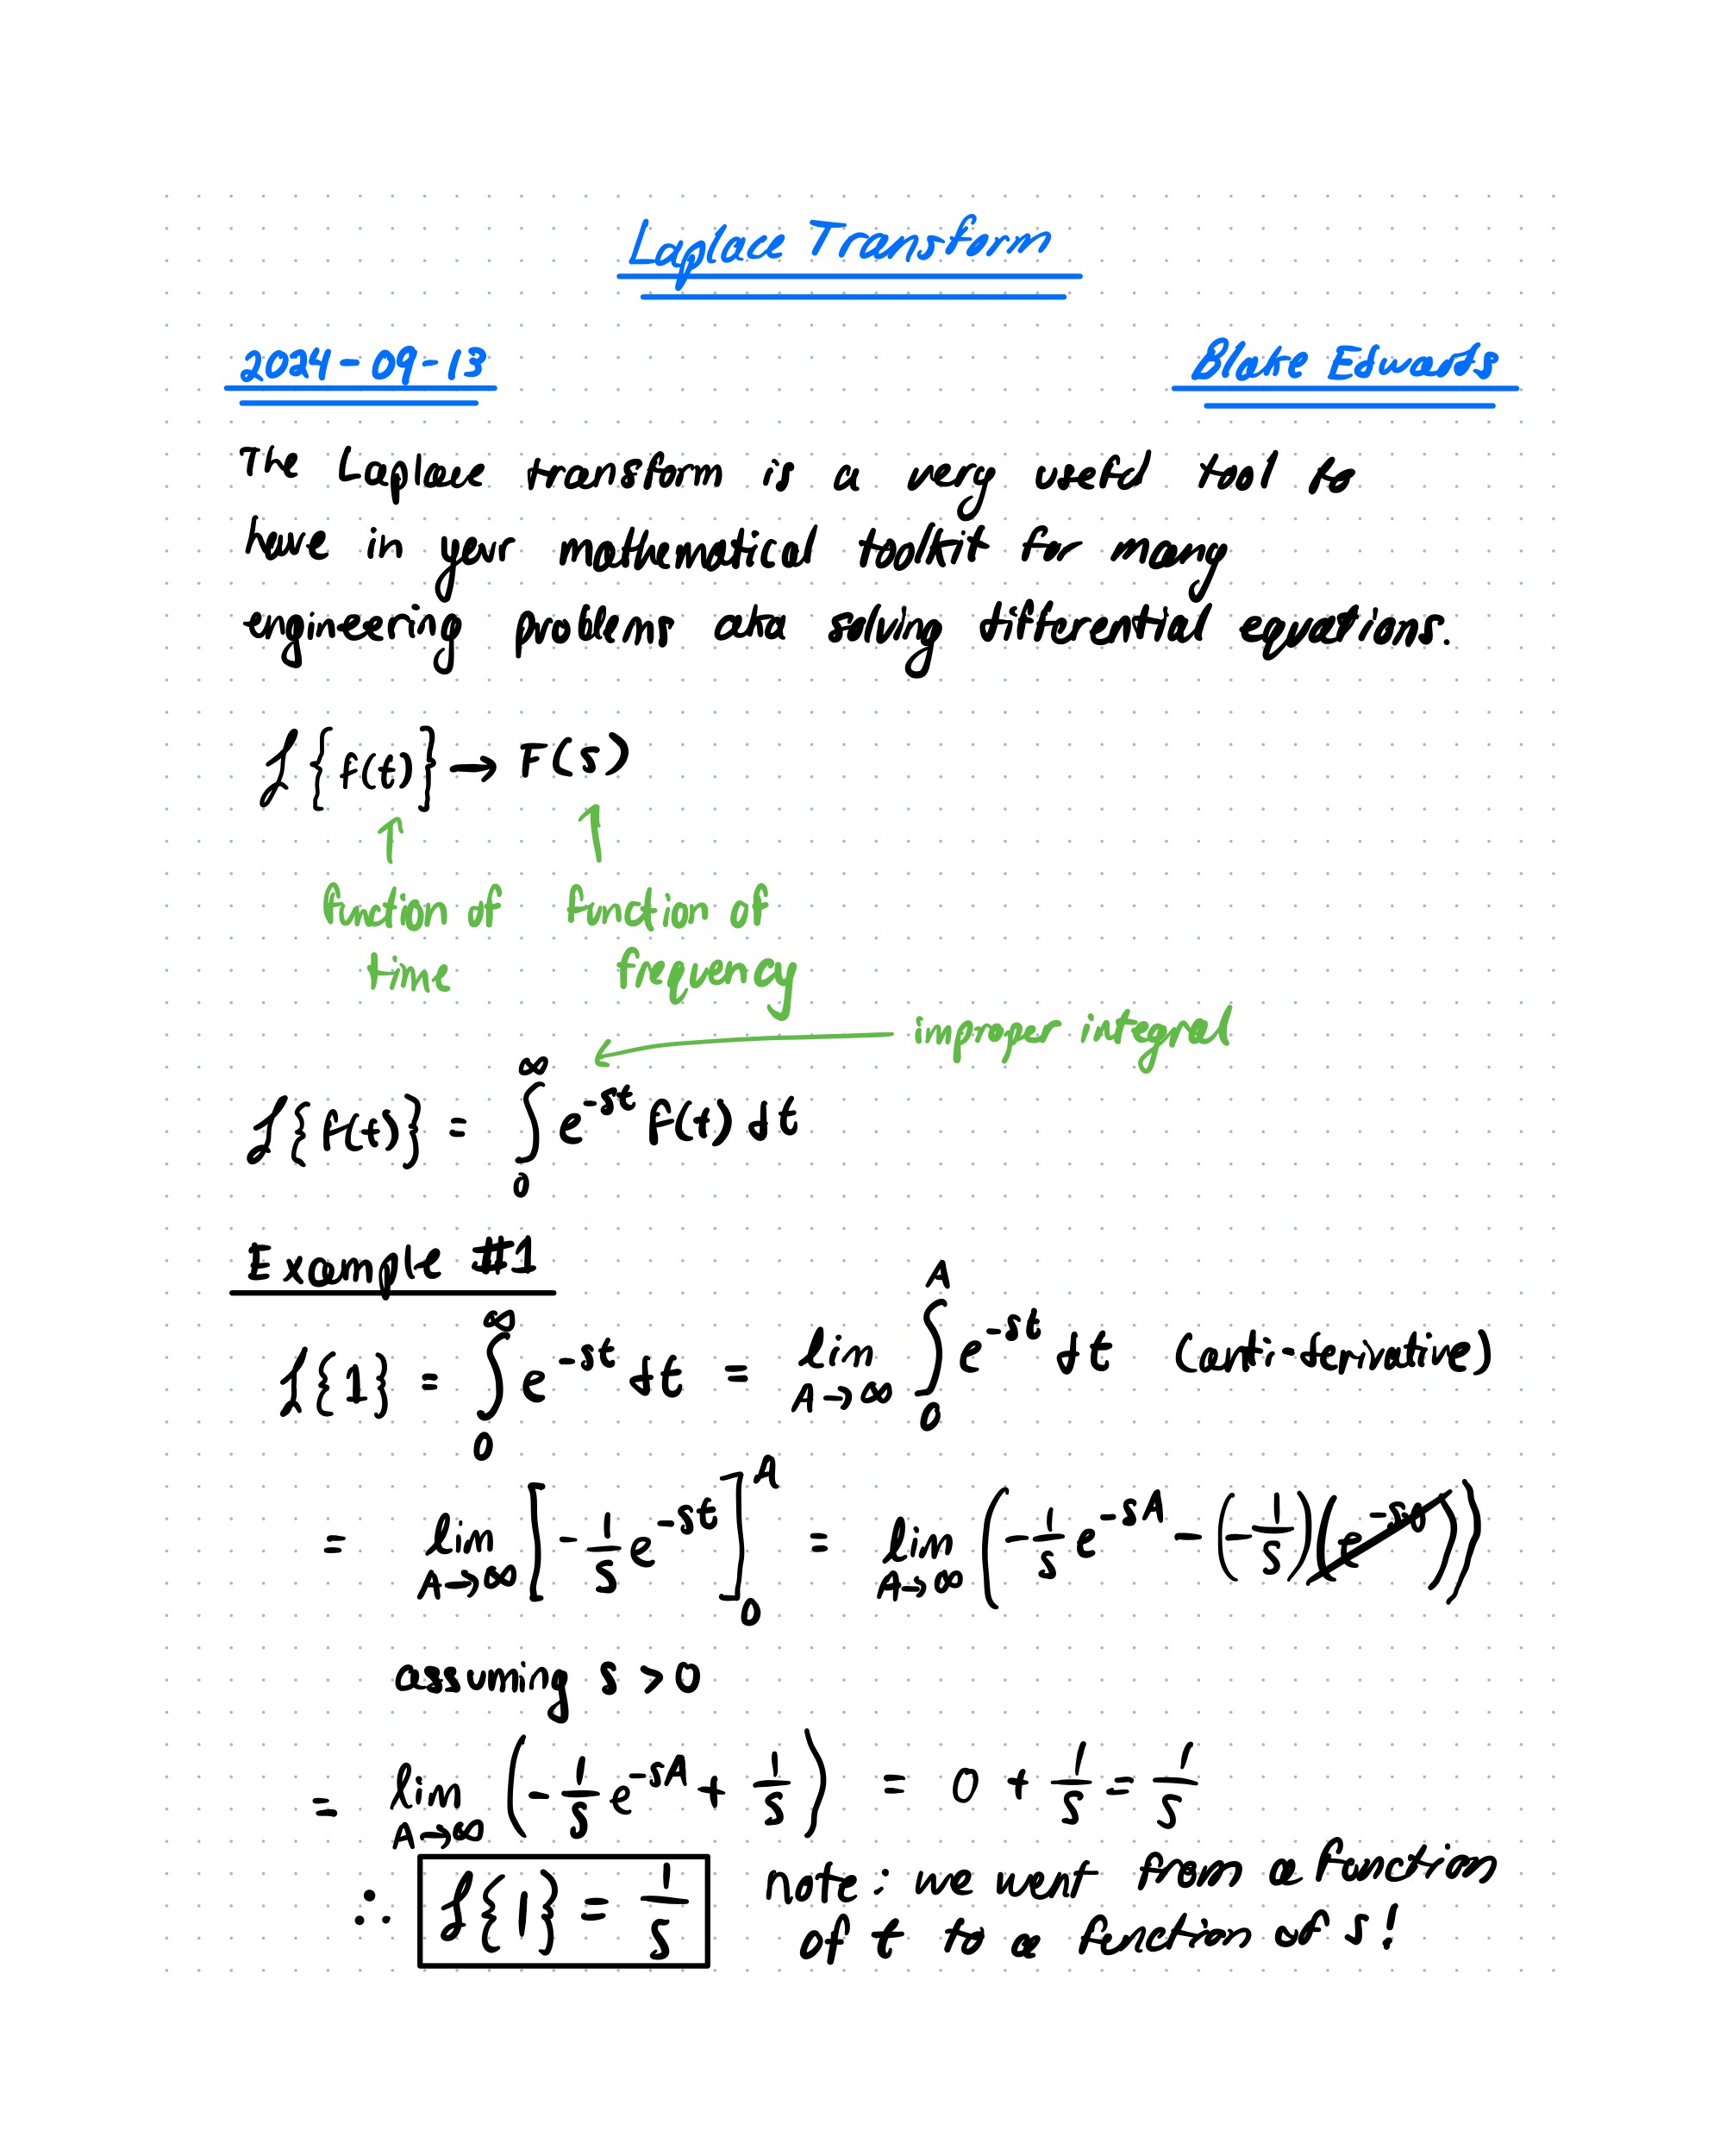 Laplace Transform
2024-09-13 Blake Edwards
The Laplace transform is a very useful tool to
have in your mathematical toolkit for many
engineering problems aka solving differential equations.
ℒ{f(t)} → F(s)
↑ ↑
function of function of
time frequency
← improper integral
ℒ{f(t)} = ∫₀^∞ e^{-st} f(t) dt
Example #1
ℒ{1} = ∫₀^∞ e^{-st} dt = lim_{A→∞} ∫₀^A e^{-st} dt (anti-derivative)
= lim_{A→∞} [-1/s e^{-st}]₀^A = lim_{A→∞} (-1/s e^{-sA} - (-1/s)(e^{-s0}))
assuming s > 0
= lim_{A→∞} (-1/s e^{-sA} + 1/s) = 0 + 1/s = 1/s
∴ ℒ{1} = 1/s note: we went from a function
of t to a function of s!